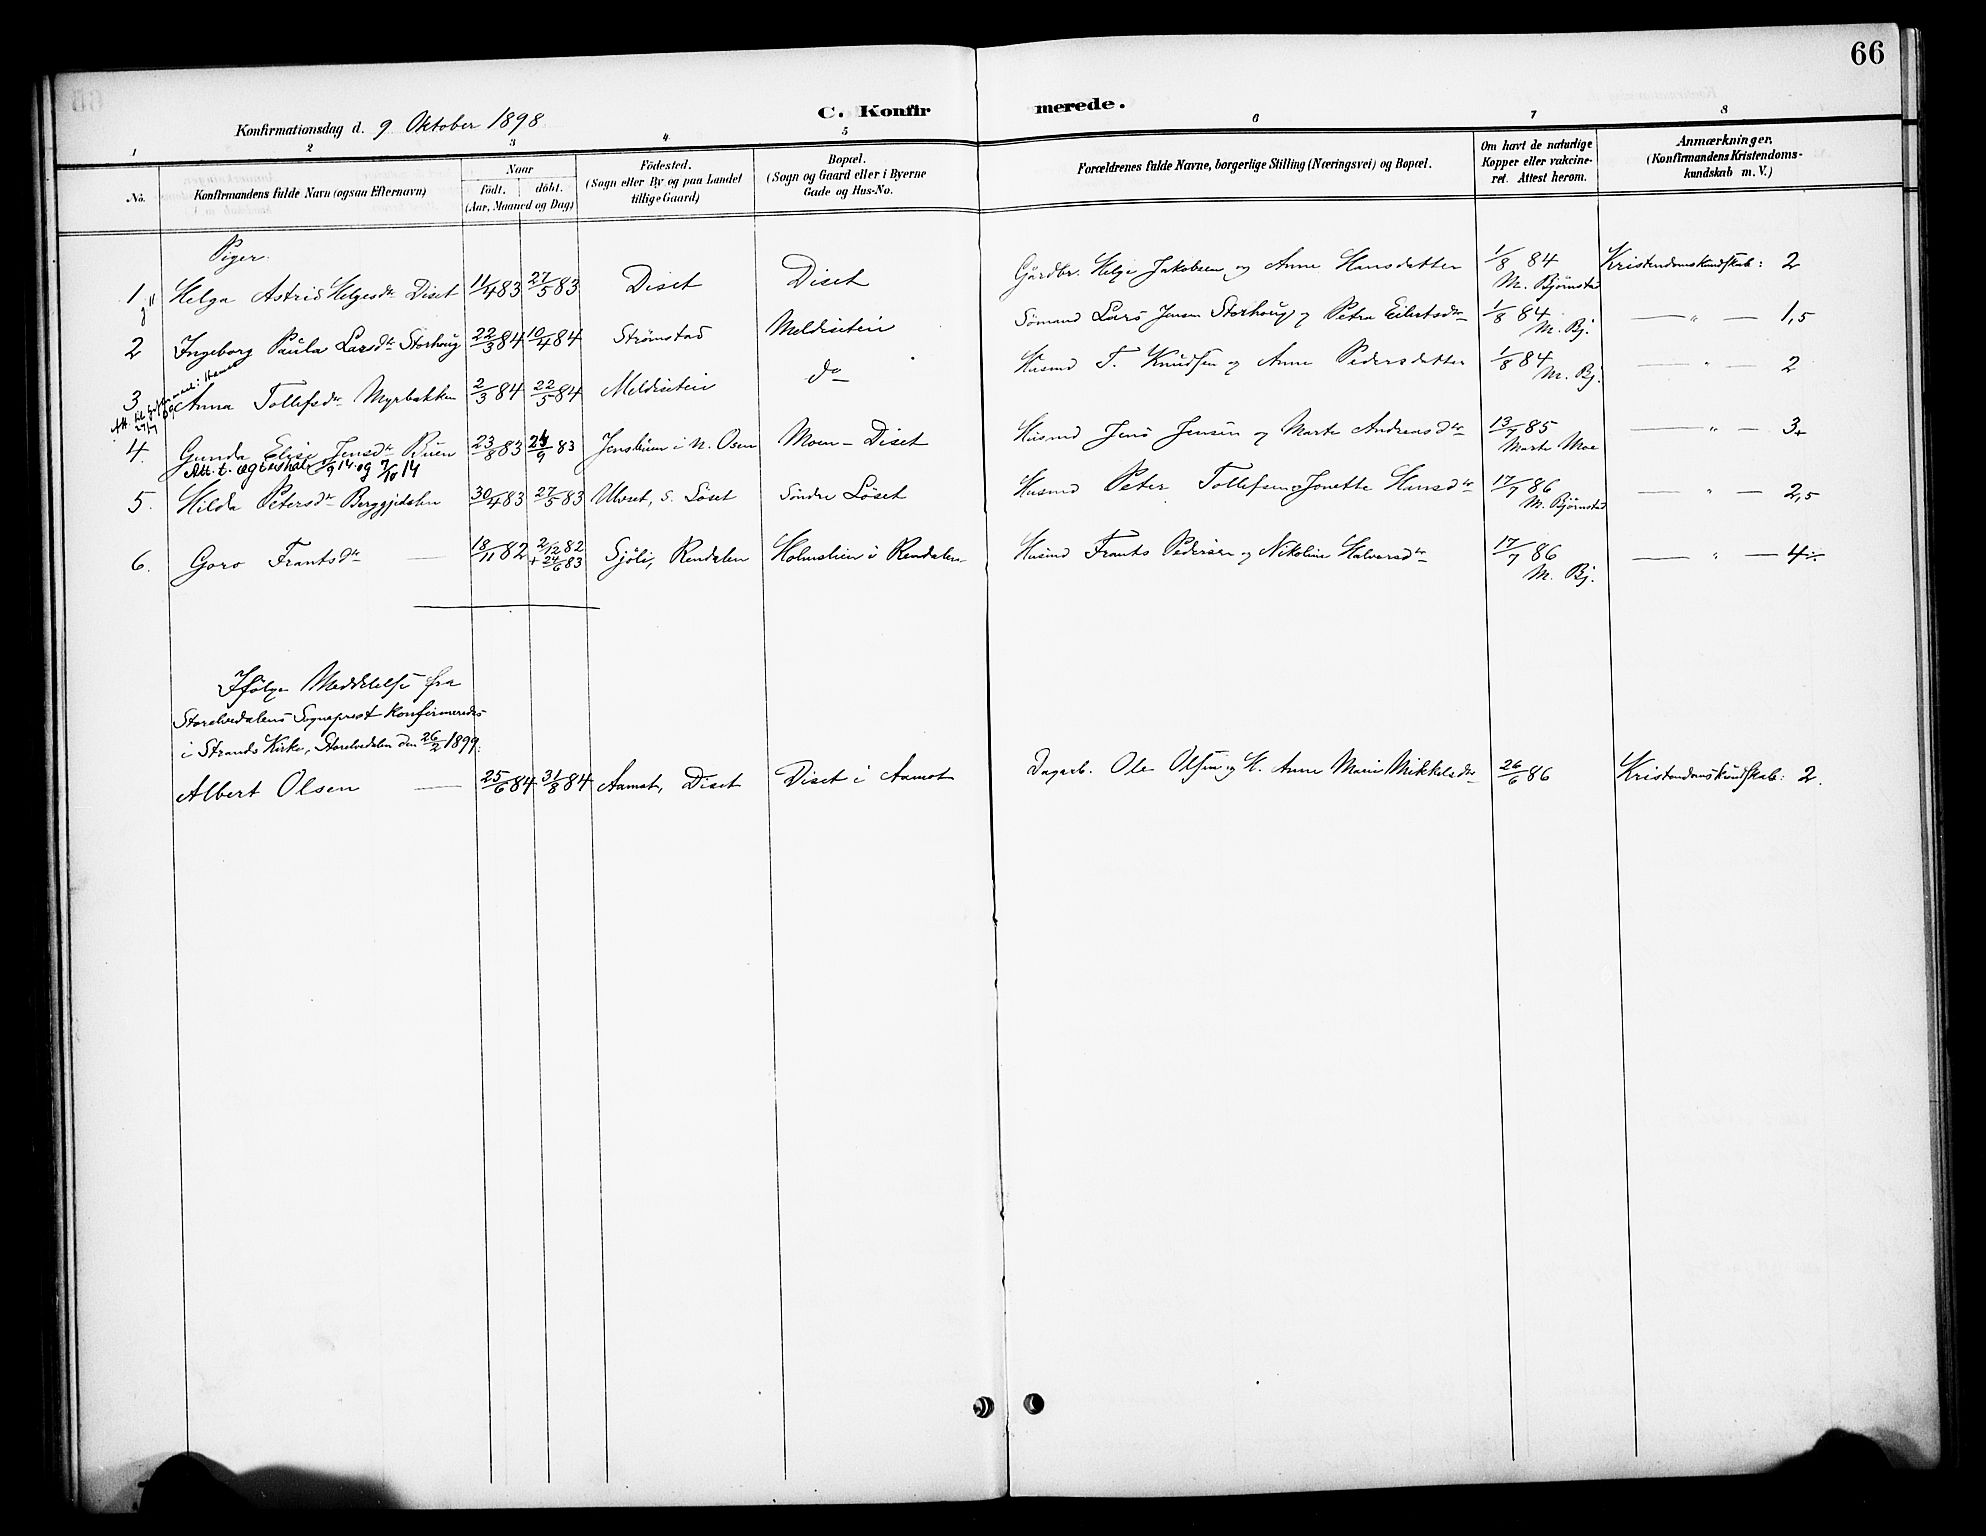 66
C. Konfirmerede.
Konfirmationsdag d. 9 Oktober 1898
1 2 3 4 5 6 7 8
No. Konfirmandens fulde Navn (ogsaa Efternavn) Naar Födt. döbt. (Aar, Maaned og Dag) Födested. (Sogn eller By og paa Landet tillige Gaard) Bopæl. (Sogn og Gaard eller i Byerne Gade og Hus-No. Forældrenes fulde Navne, borgerlige Stilling (Næringsvei) og Bopæl. Om havt de naturlige Kopper eller vakcineret. Attest herom. Anmærkninger. (Konfirmandens Kristendomskundskab m. V.)
Piger.
1 Helga Astrid Helgesdr Diset 11/4 83 27/5 83 Diset Diset Gårdbr. Helge Jakobsen og Anne Hansdatter 1/8 84 M. Bjørnstad Kristendomskundskab: 2
2 Ingeborg Paula Larsdr Storhoug 22/3 84 10/4 84 Strömstad Meldiseteie Sömand Lars Jensen Storhoug og Petra Eilertsdr 1/8 84 M. Bj. — " — 1,5
3 Anna Tollefsdr Myrbakken 2/3 84 22/5 84 Meldiseteie do Husmd T. Knudsen og Anne Pedersdatter 1/8 84 M. Bj. — " — 2
4. Gunda Elise Jensdr Buen 23/8 83 24/9 83 Jensbuen i N. Osen Moen - Diset Husmd Jens Jensen og Marte Andreasdr 13/7 85 Marte Moe — " — 3+
Att. t. ægteskab 5/9 14 og 7/10 14
5. Hilda Petersdr Berggjdalen 30/4 83 27/5 83 Ulvset, S. Löset Söndre Löset Husmd Peter Tollefsen og Jonette Hansdr 17/7 86 M. Bjørnstad — " — 2,5
6. Goro Frantsdr — 18/11 82 2/12 82 + 24/6 83 Sjöli, Rendalen Holmslien i Rendalen Husmd Frants Pedersen og Nikoline Halvorsdr 17/7 86 M. Bj. — " — 4÷
Ifölge Meddelelse fra
Storelvedalens Sogneprest konfirmeredes
i Strands Kirke, Storelvedalen den 26/2 1899:
Albert Olsen — 25/6 84 31/8 84 Aamot, Diset Diset i Aamot Dagarb. Ole Olsen og H. Anne Marie Mikkelsdr 26/6 86 Kristendomskundskab: 2.